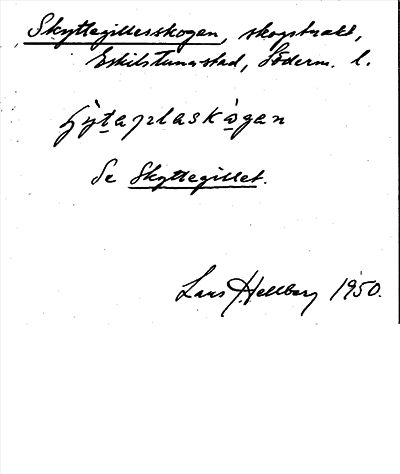 Skyttegillesskogen, skogstrakt,
Eskilstuna stad, Söderm. l.
Se Skyttegillet.
Lars Hellberg 1950.